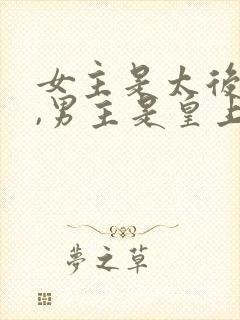 女主是太後
,男主是皇上
夢之草